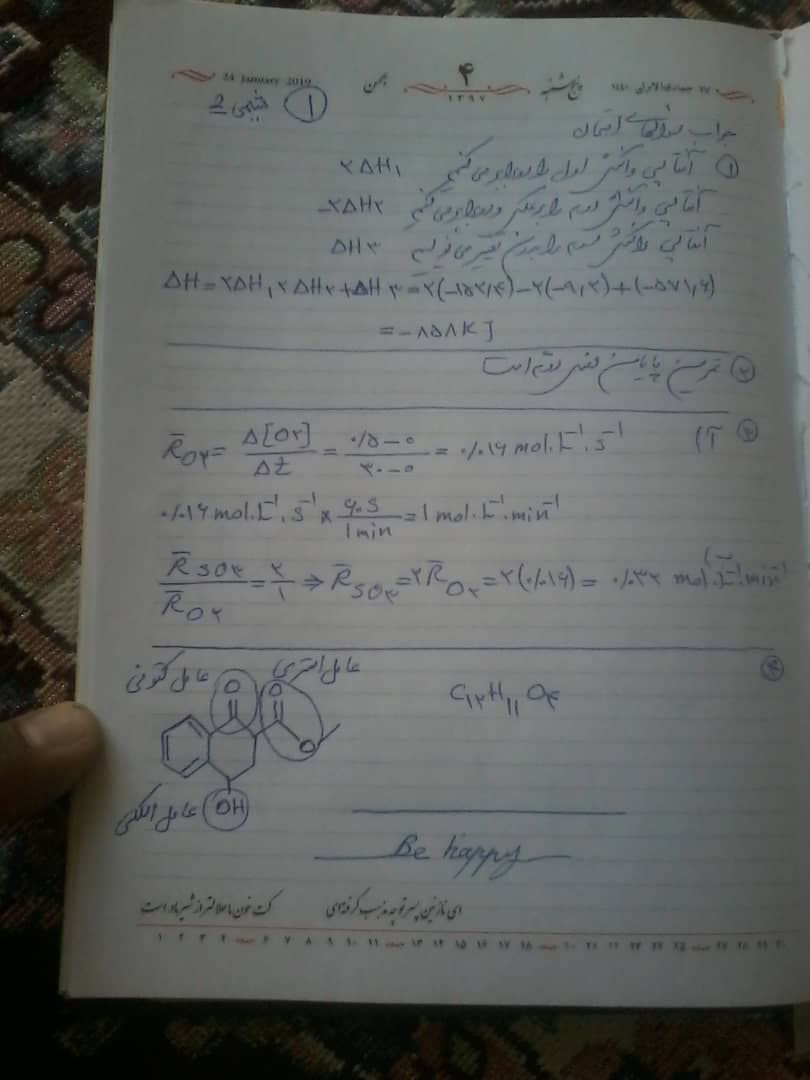 24 January 2019 بهمن ۴ ۱۳۹۷ پنج‌شنبه ۱۷ جمادی‌الاولی ۱۴۴۰
① شیمی 2
جواب سوالهای امتحان
① آنتالپی واکنش اول را دو برابر می کنیم ۲ΔH۱
آنتالپی واکنش دوم را برعکس و دو برابر می کنیم -۲ΔH۲
آنتالپی واکنش سوم را بدون تغییر می نویسیم ΔH۳
ΔH = ۲ΔH۱ ۲ΔH۲ + ΔH۳ = ۲(-۱۵۲,۴) - ۲(-۹,۲) + (-۵۷۱,۶)
= -۸۵۸ KJ
② تمرین پایان فصل دوم است
③ آ) R̄O۲ = Δ[O۲]/Δt = ۰/۵-۰/۳۰-۰ = ۰/۰۱۶ mol.L⁻¹.s⁻¹
۰/۰۱۶ mol.L⁻¹.s⁻¹ × ۶۰s/۱min = ۱ mol.L⁻¹.min⁻¹
ب) R̄SO۳/R̄O۲ = ۲/۱ ⇒ R̄SO۳ = ۲R̄O۲ = ۲(۰/۰۱۶) = ۰/۰۳۲ mol.L⁻¹.min⁻¹
④
عامل کتونی عامل استری
C۱۲H۱۱O۴
O O
O
عامل الکلی OH
Be happy
ای نازنین پسر تو چه مذهب گرفته‌ای کت خون ما حلالتر از شیر مادر است
۱ ۲ ۳ ۴ جمعه ۶ ۷ ۸ ۹ ۱۰ ۱۱ جمعه ۱۳ ۱۴ ۱۵ ۱۶ ۱۷ ۱۸ جمعه ۲۰ ۲۱ ۲۲ ۲۳ ۲۴ ۲۵ جمعه ۲۷ ۲۸ ۲۹ ۳۰